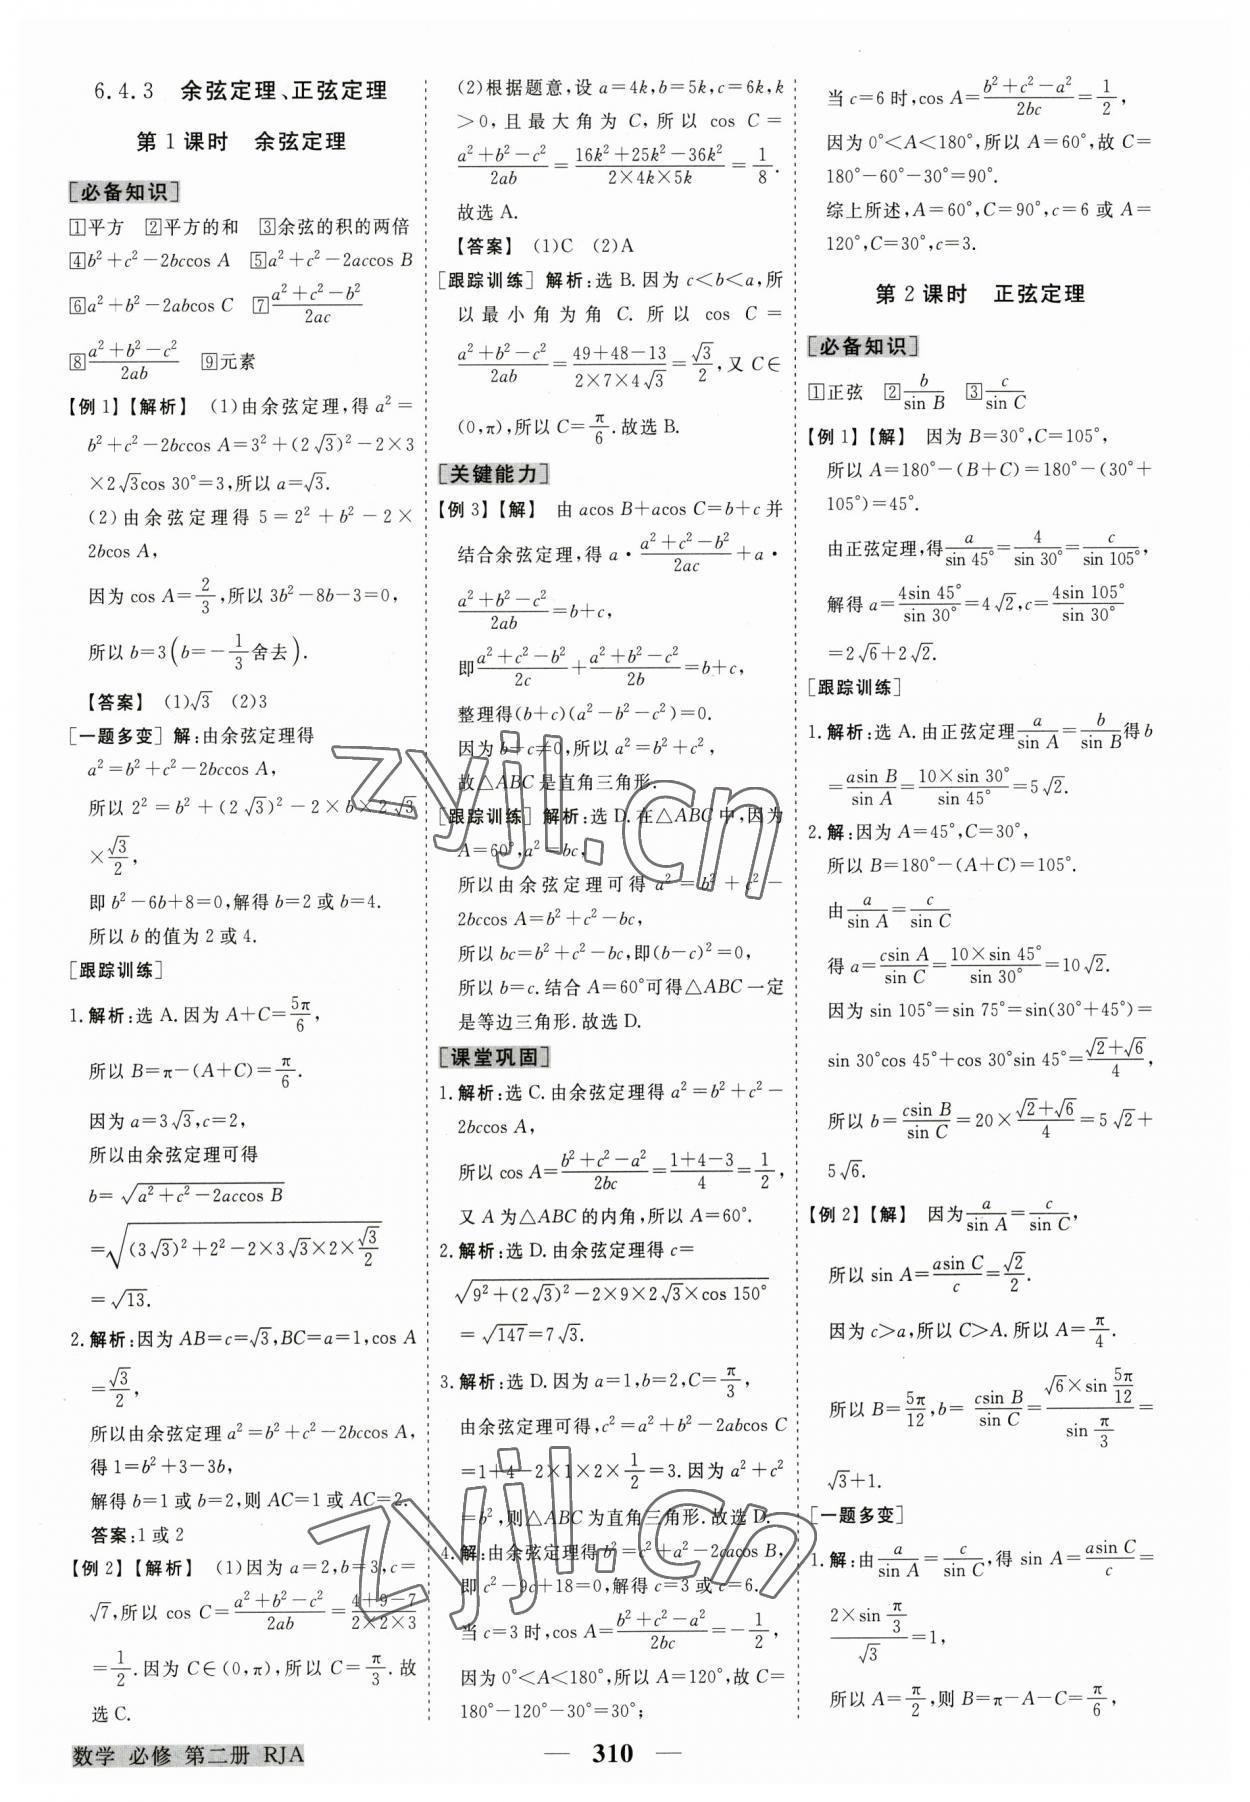 6.4.3 余弦定理、正弦定理
第1课时 余弦定理
[必备知识]
1平方 2平方的和 3余弦的积的两倍
4b²+c²-2bccos A 5a²+c²-2accos B
6a²+b²-2abcos C 7(a²+c²-b²)/2ac
8(a²+b²-c²)/2ab 9元素
【例1】【解析】 (1)由余弦定理,得 a²=
b²+c²-2bccos A=3²+(2√3)²-2×3
×2√3cos 30°=3,所以 a=√3.
(2)由余弦定理得 5=2²+b²-2×
2bcos A,
因为 cos A=2/3,所以 3b²-8b-3=0,
所以 b=3(b=-1/3舍去).
【答案】 (1)√3 (2)3
[一题多变] 解:由余弦定理得
a²=b²+c²-2bccos A,
所以 2²=b²+(2√3)²-2×b×2√3
×√3/2,
即 b²-6b+8=0,解得 b=2 或 b=4.
所以 b 的值为 2 或 4.
[跟踪训练]
1.解析:选 A.因为 A+C=5π/6,
所以 B=π-(A+C)=π/6.
因为 a=3√3,c=2,
所以由余弦定理可得
b=√(a²+c²-2accos B)
=√((3√3)²+2²-2×3√3×2×√3/2)
=√13.
2.解析:因为 AB=c=√3,BC=a=1,cos A
=√3/2,
所以由余弦定理 a²=b²+c²-2bccos A,
得 1=b²+3-3b,
解得 b=1 或 b=2,则 AC=1 或 AC=2.
答案:1 或 2
【例2】【解析】 (1)因为 a=2,b=3,c=
√7,所以 cos C=(a²+b²-c²)/2ab=(4+9-7)/(2×2×3)
=1/2.因为 C∈(0,π),所以 C=π/3.故
选 C.
(2)根据题意,设 a=4k,b=5k,c=6k,k
>0,且最大角为 C,所以 cos C=
(a²+b²-c²)/2ab=(16k²+25k²-36k²)/(2×4k×5k)=1/8.
故选 A.
【答案】 (1)C (2)A
[跟踪训练] 解析:选 B.因为 c<b<a,所
以最小角为角 C.所以 cos C=
(a²+b²-c²)/2ab=(49+48-13)/(2×7×4√3)=√3/2,又 C∈
(0,π),所以 C=π/6.故选 B.
[关键能力]
【例3】【解】 由 acos B+acos C=b+c 并
结合余弦定理,得 a·(a²+c²-b²)/2ac+a·
(a²+b²-c²)/2ab=b+c,
即(a²+c²-b²)/2c+(a²+b²-c²)/2b=b+c,
整理得(b+c)(a²-b²-c²)=0.
因为 b+c≠0,所以 a²=b²+c²,
故△ABC 是直角三角形.
[跟踪训练] 解析:选 D.在△ABC 中,因为
A=60°,a²=bc,
所以由余弦定理可得 a²=b²+c²-
2bccos A=b²+c²-bc,
所以 bc=b²+c²-bc,即(b-c)²=0,
所以 b=c.结合 A=60°可得△ABC 一定
是等边三角形.故选 D.
[课堂巩固]
1.解析:选 C.由余弦定理得 a²=b²+c²-
2bccos A,
所以 cos A=(b²+c²-a²)/2bc=(1+4-3)/4=1/2,
又 A 为△ABC 的内角,所以 A=60°.
2.解析:选 D.由余弦定理得 c=
√(9²+(2√3)²-2×9×2√3×cos 150°)
=√147=7√3.
3.解析:选 D.因为 a=1,b=2,C=π/3,
由余弦定理可得,c²=a²+b²-2abcos C
=1+4-2×1×2×1/2=3.因为 a²+c²
=b²,则△ABC 为直角三角形.故选 D.
4.解:由余弦定理得 b²=c²+a²-2cacos B,
即 c²-9c+18=0,解得 c=3 或 c=6.
当 c=3 时,cos A=(b²+c²-a²)/2bc=-1/2,
因为 0°<A<180°,所以 A=120°,故 C=
180°-120°-30°=30°;
当 c=6 时,cos A=(b²+c²-a²)/2bc=1/2,
因为 0°<A<180°,所以 A=60°,故 C=
180°-60°-30°=90°.
综上所述,A=60°,C=90°,c=6 或 A=
120°,C=30°,c=3.
第2课时 正弦定理
[必备知识]
1正弦 2b/sin B 3c/sin C
【例1】【解】 因为 B=30°,C=105°,
所以 A=180°-(B+C)=180°-(30°+
105°)=45°.
由正弦定理,得a/sin 45°=4/sin 30°=c/sin 105°,
解得 a=4sin 45°/sin 30°=4√2,c=4sin 105°/sin 30°
=2√6+2√2.
[跟踪训练]
1.解析:选 A.由正弦定理a/sin A=b/sin B得 b
=asin B/sin A=10×sin 30°/sin 45°=5√2.
2.解:因为 A=45°,C=30°,
所以 B=180°-(A+C)=105°.
由a/sin A=c/sin C
得 a=csin A/sin C=10×sin 45°/sin 30°=10√2.
因为 sin 105°=sin 75°=sin(30°+45°)=
sin 30°cos 45°+cos 30°sin 45°=(√2+√6)/4,
所以 b=csin B/sin C=20×(√2+√6)/4=5√2+
5√6.
【例2】【解】 因为a/sin A=c/sin C,
所以 sin A=asin C/c=√2/2.
因为 c>a,所以 C>A.所以 A=π/4.
所以 B=5π/12,b=csin B/sin C=(√6×sin 5π/12)/(sin π/3)=
√3+1.
[一题多变]
1.解:由a/sin A=c/sin C,得 sin A=asin C/c=
(2×sin π/3)/√3=1,
所以 A=π/2,则 B=π-A-C=π/6,
数学 必修 第二册 RJA
310
zyjl.cn
zyjl.cn